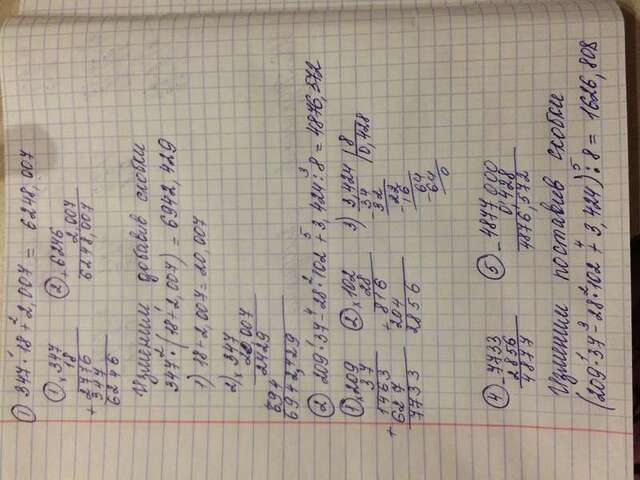 ① 347·18+2,007 = 6248,007
① × 347
18
+ 2776
347
6246
② 6246
2,007
6248,007
Изменим добавив скобки
347·(18+2,007) = 6942,429
1) 18+2,007=20,007
2) × 347
20,007
2429
694
6942,429
② 209·37-28·102+3,424:8=4876,572
① × 209
37
+ 1463
627
7733
② × 102
28
+ 816
204
2856
3) 3,424 | 8
34 0,428
32
-22
16
-64
64
0
④ - 7733
2856
4877
⑤ - 4877,000
0,428
4876,572
Изменим поставив скобки
(209·37-28·102+3,424):8= 1626,808